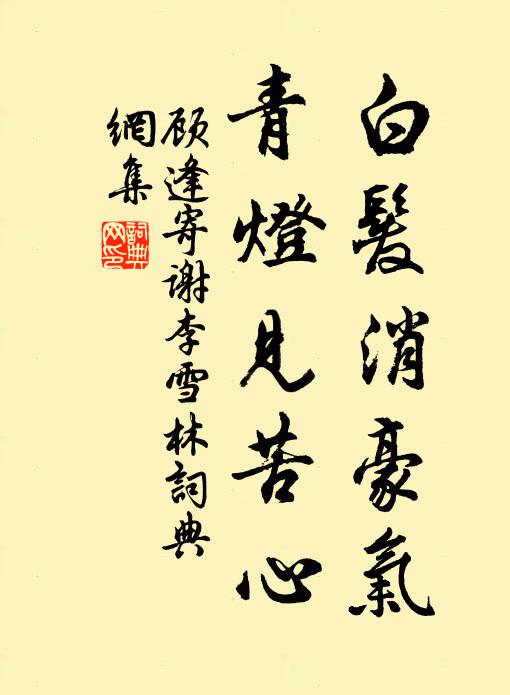 白髮消豪氣
青燈見苦心
顧逢寄謝李雪林詞典
網集
詞典
网印